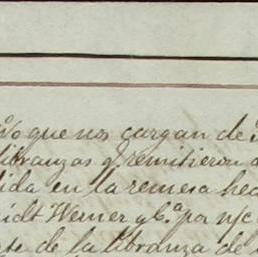 que nos cargan de
libranzas q. remitieron
ida en la remesa hec
idt Werner y C.ª por n/c
te de la libranza de